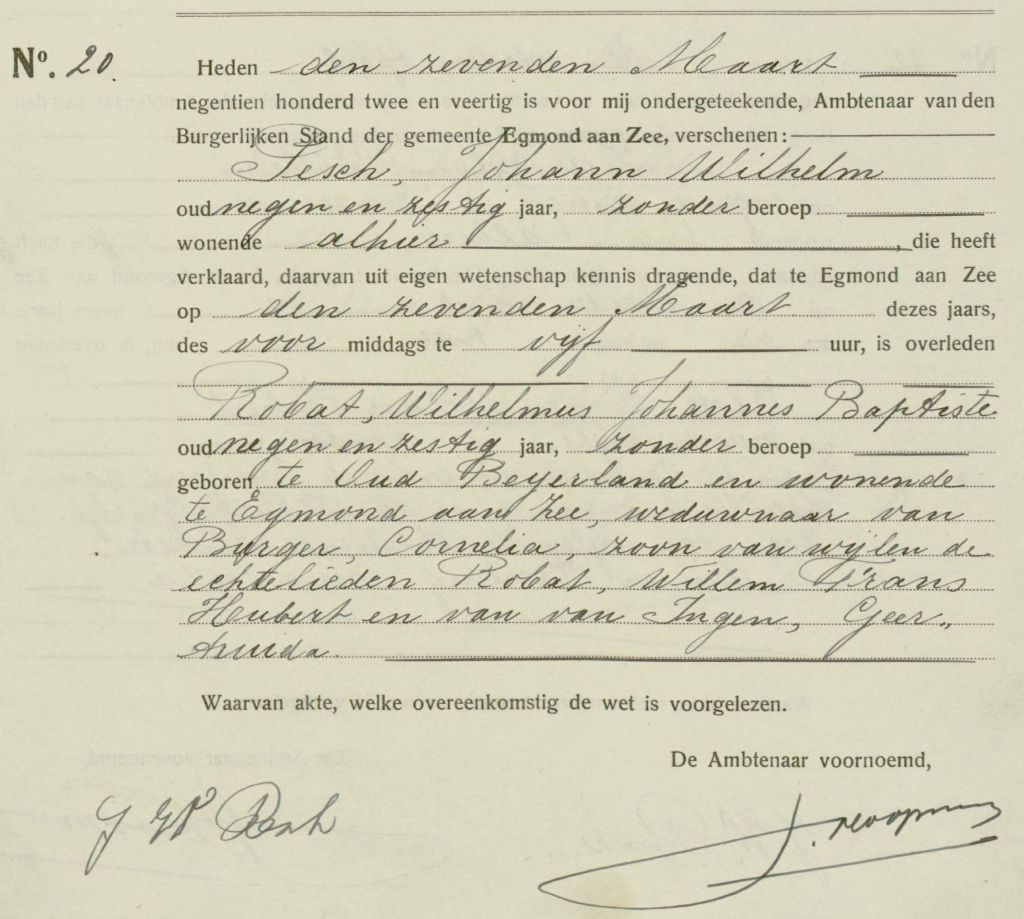 Nº. 20.
Heden den zevenden Maart
negentien honderd twee en veertig is voor mij ondergeteekende, Ambtenaar van den
Burgerlijken Stand der gemeente Egmond aan Zee, verschenen:
Pesch, Johann Wilhelm
oud negen en zestig jaar, zonder beroep
wonende alhier, die heeft
verklaard, daarvan uit eigen wetenschap kennis dragende, dat te Egmond aan Zee
op den zevenden Maart dezes jaars,
des voor middags te vijf uur, is overleden
Robat, Wilhelmus Johannes Baptiste
oud negen en zestig jaar, zonder beroep
geboren te Oud Beyerland en wonende
te Egmond aan Zee, weduwnaar van
Burger, Cornelia, zoon van wijlen de
echtelieden Robat, Willem Frans
Hubert en van van Ingen, Geer„
truida.
Waarvan akte, welke overeenkomstig de wet is voorgelezen.
De Ambtenaar voornoemd,